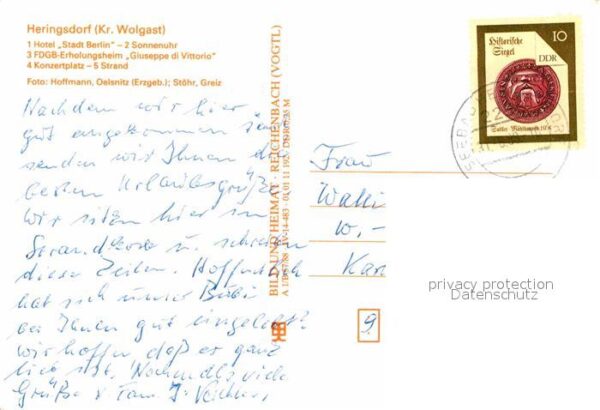 Heringsdorf (Kr. Wolgast)
1 Hotel „Stadt Berlin" – 2 Sonnenuhr
3 FDGB-Erholungsheim „Giuseppe di Vittorio"
4 Konzertplatz – 5 Strand
Foto: Hoffmann, Oelsnitz (Erzgeb.); Stöhr, Greiz
Nachdem wir hier
gut angekommen sind
senden wir Ihnen die
besten Urlaubsgrüße
wir sitzen hier im
Strandkorb u. schreiben
diese Zeilen. Hoffentlich
hat sich unser Bubi
bei Ihnen gut eingelebt?
wir hoffen, daß er ganz
lieb ist. Nochmals viele
Grüße v. Fam. J.
BILD UND HEIMAT · REICHENBACH (VOGTL)
Historische
Siegel
10
DDR
SEEBAD
22
Frau
W.-
Kar
9
privacy protection
Datenschutz